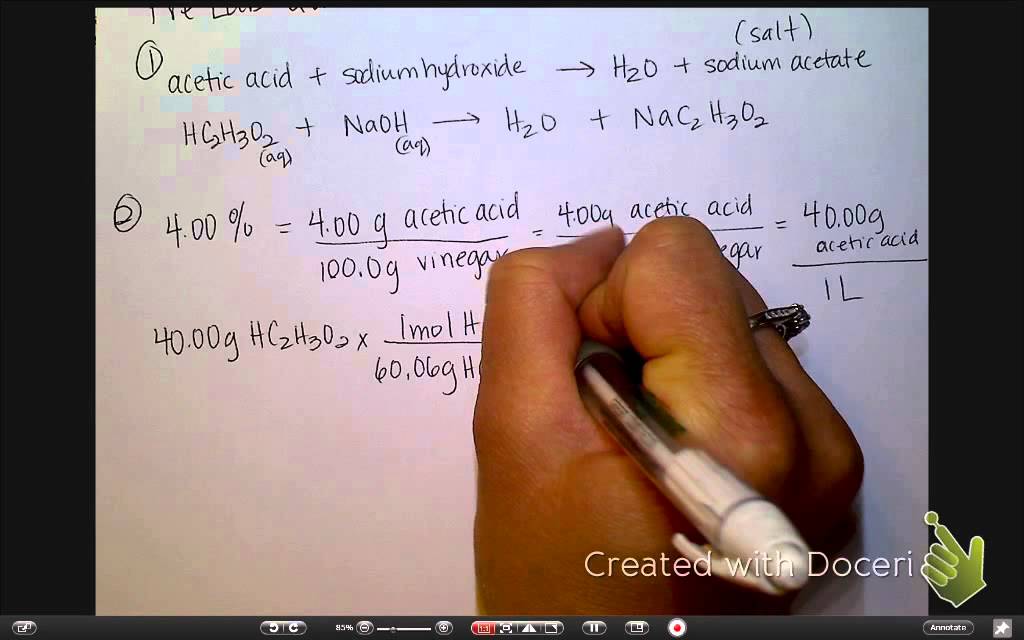 (salt)
① acetic acid + sodium hydroxide → H2O + sodium acetate
HC2H3O2 (aq) + NaOH (aq) → H2O + NaC2H3O2
② 4.00 % = 4.00 g acetic acid / 100.0g vinegar = 4.00g acetic acid / = 40.00g acetic acid / 1 L
40.00g HC2H3O2 x 1mol H / 60.06g H
Created with Doceri
85%
1:1
Annotate